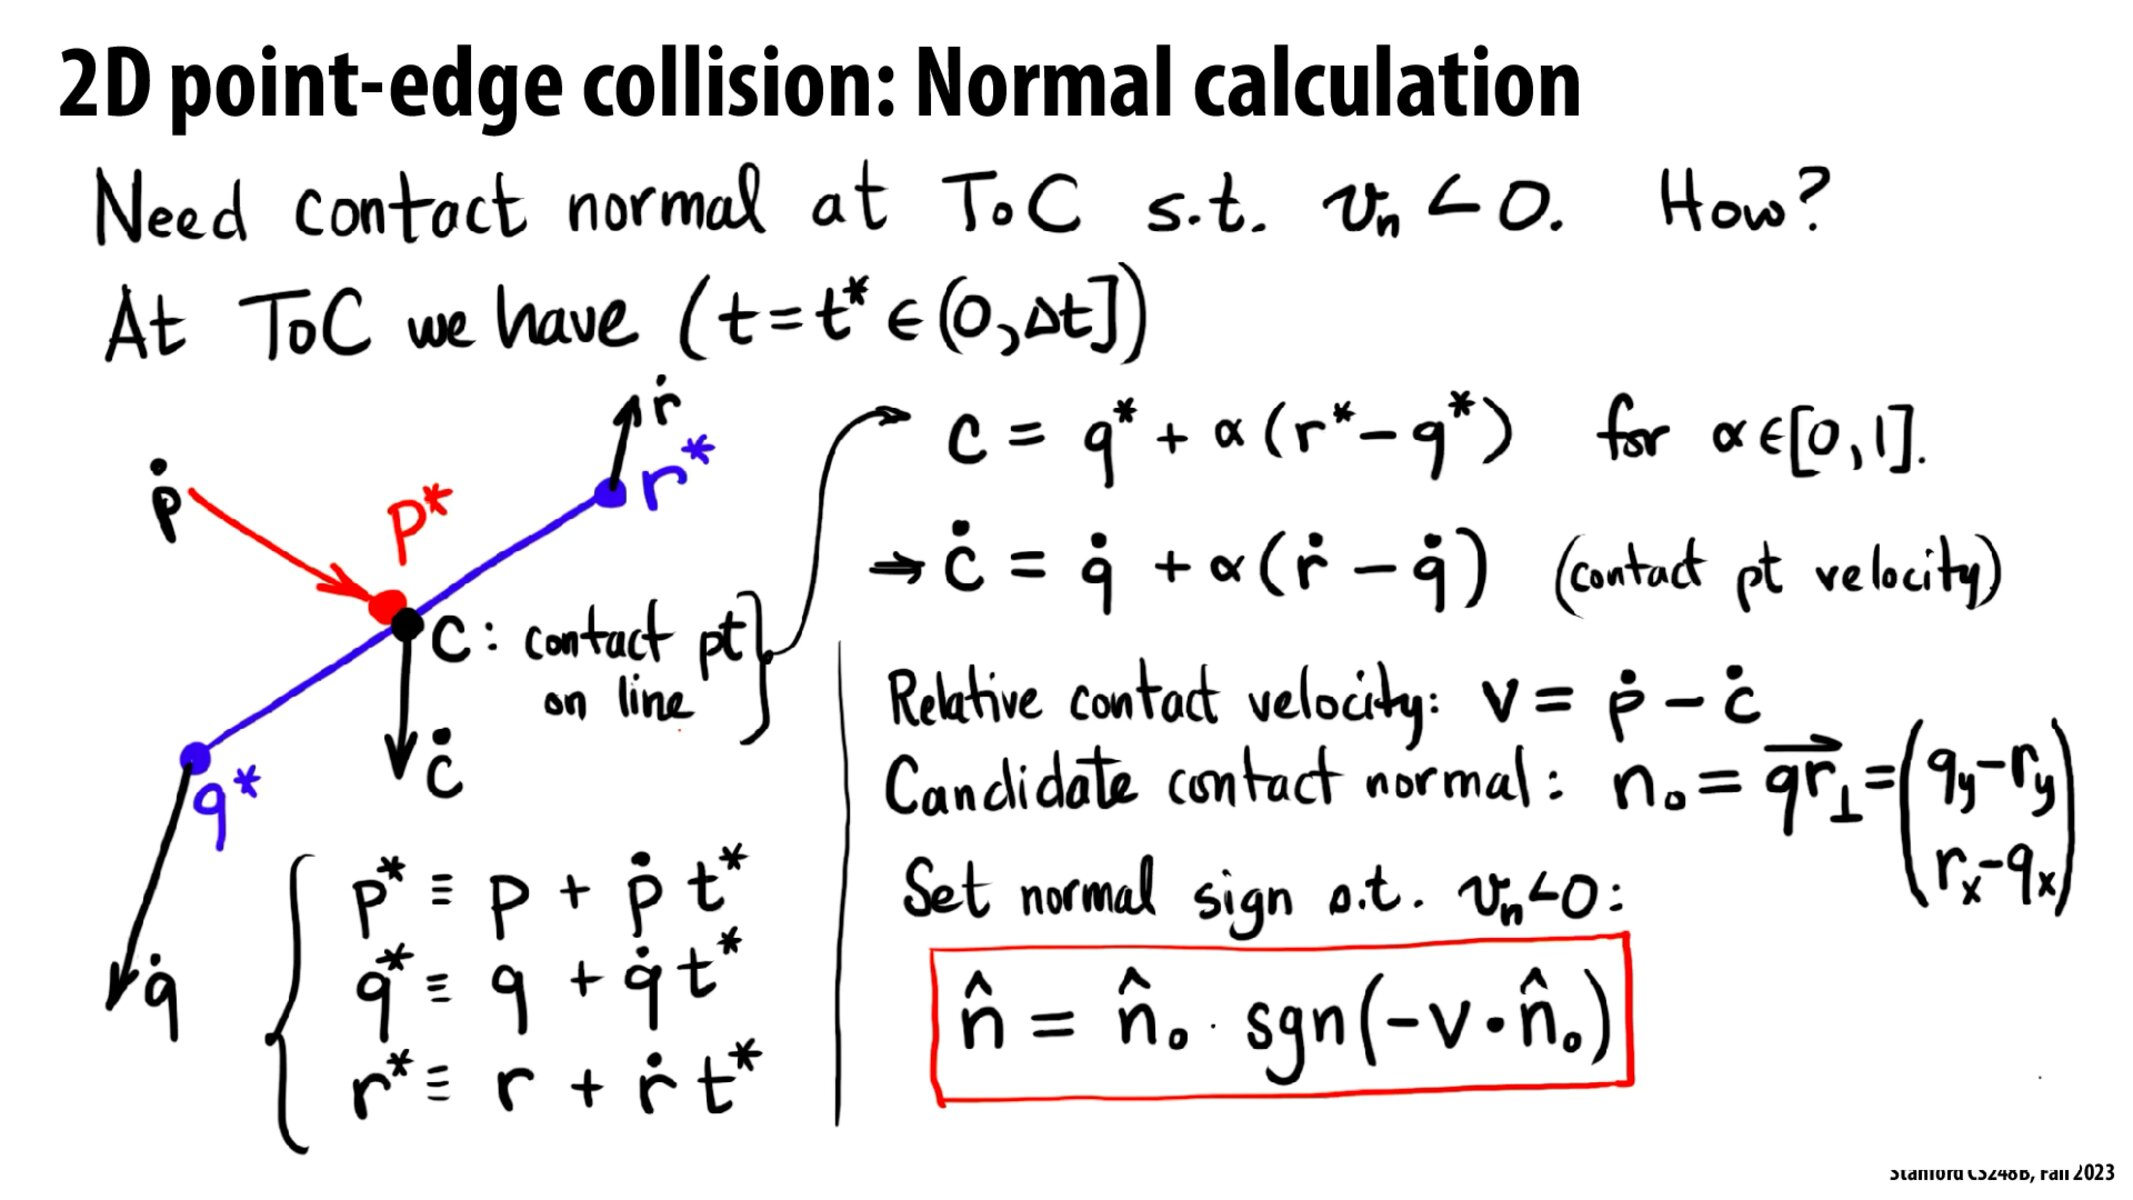 2D point-edge collision: Normal calculation
Need contact normal at ToC s.t. vₙ < 0. How?
At ToC we have (t = t* ∈ (0, Δt])
ṙ
r*
ṗ
p*
c : contact pt
on line
ċ
q*
q̇
p* ≡ p + ṗ t*
q* ≡ q + q̇ t*
r* ≡ r + ṙ t*
c = q* + α (r* − q*) for α ∈ [0, 1].
⇒ ċ = q̇ + α (ṙ − q̇) (contact pt velocity)
Relative contact velocity: v = ṗ − ċ
Candidate contact normal: n₀ = q⃗r⃗⊥ = (q_y − r_y
r_x − q_x)
Set normal sign s.t. vₙ < 0:
n̂ = n̂₀ · sgn(−v · n̂₀)
Stanford CS248B, Fall 2023